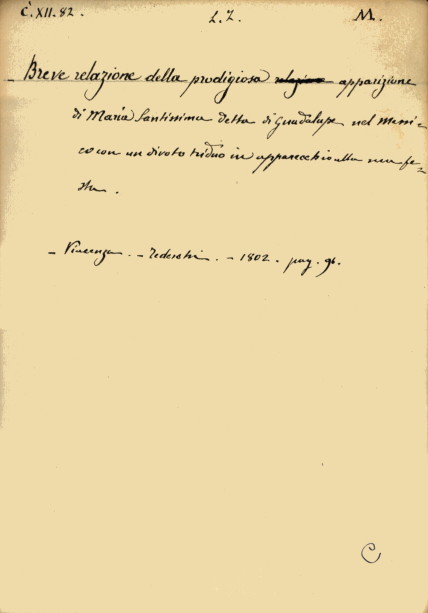 C.XII.82. L.Z. M.
Breve relazione della prodigiosa relazione apparizione
di Maria Santissima detta di Guadalupe nel Messi-
co con un divoto triduo in apparecchio alla sua fe-
sta.
- Vicenza. - Tedeschi. - 1802. pag. 96.
C